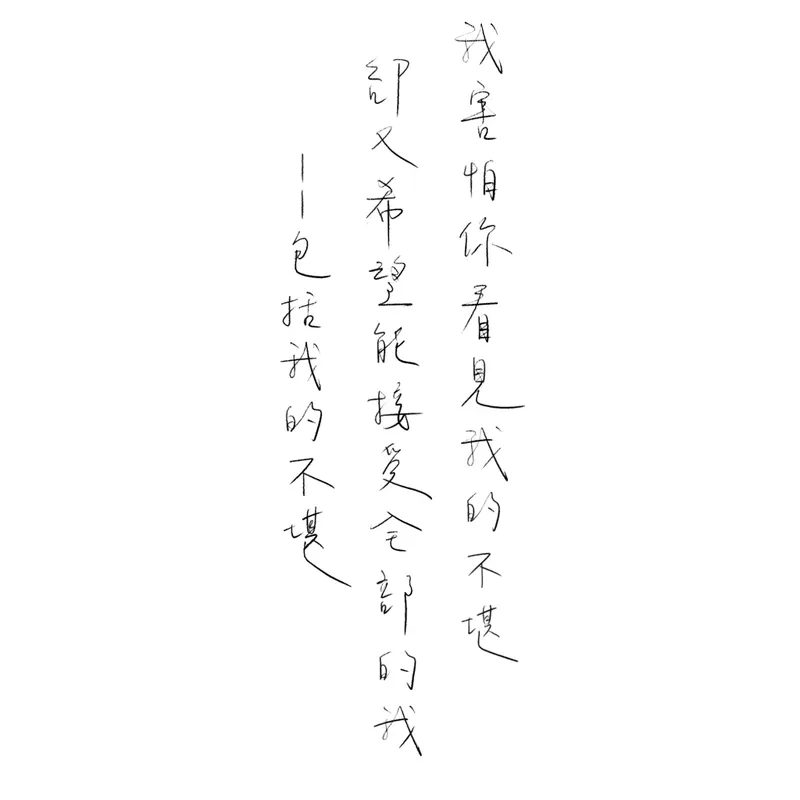 我害怕你看見我的不堪
卻又希望能接受全部的我
——包括我的不堪